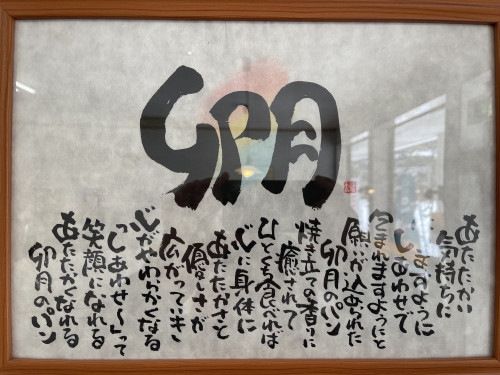 卯月
あたたかい
気持ちに
ますように
しあわせで
包まれますようにと
願いが込められた
卯月のパン
焼き立ての香りに
癒されて
ひとくち食べれば
心に身体に
あたたかさと
優しさが
広がっていき
心がやわらかくなる
"しあわせ〜"って
笑顔になれる
あたたかくなれる
卯月のパン